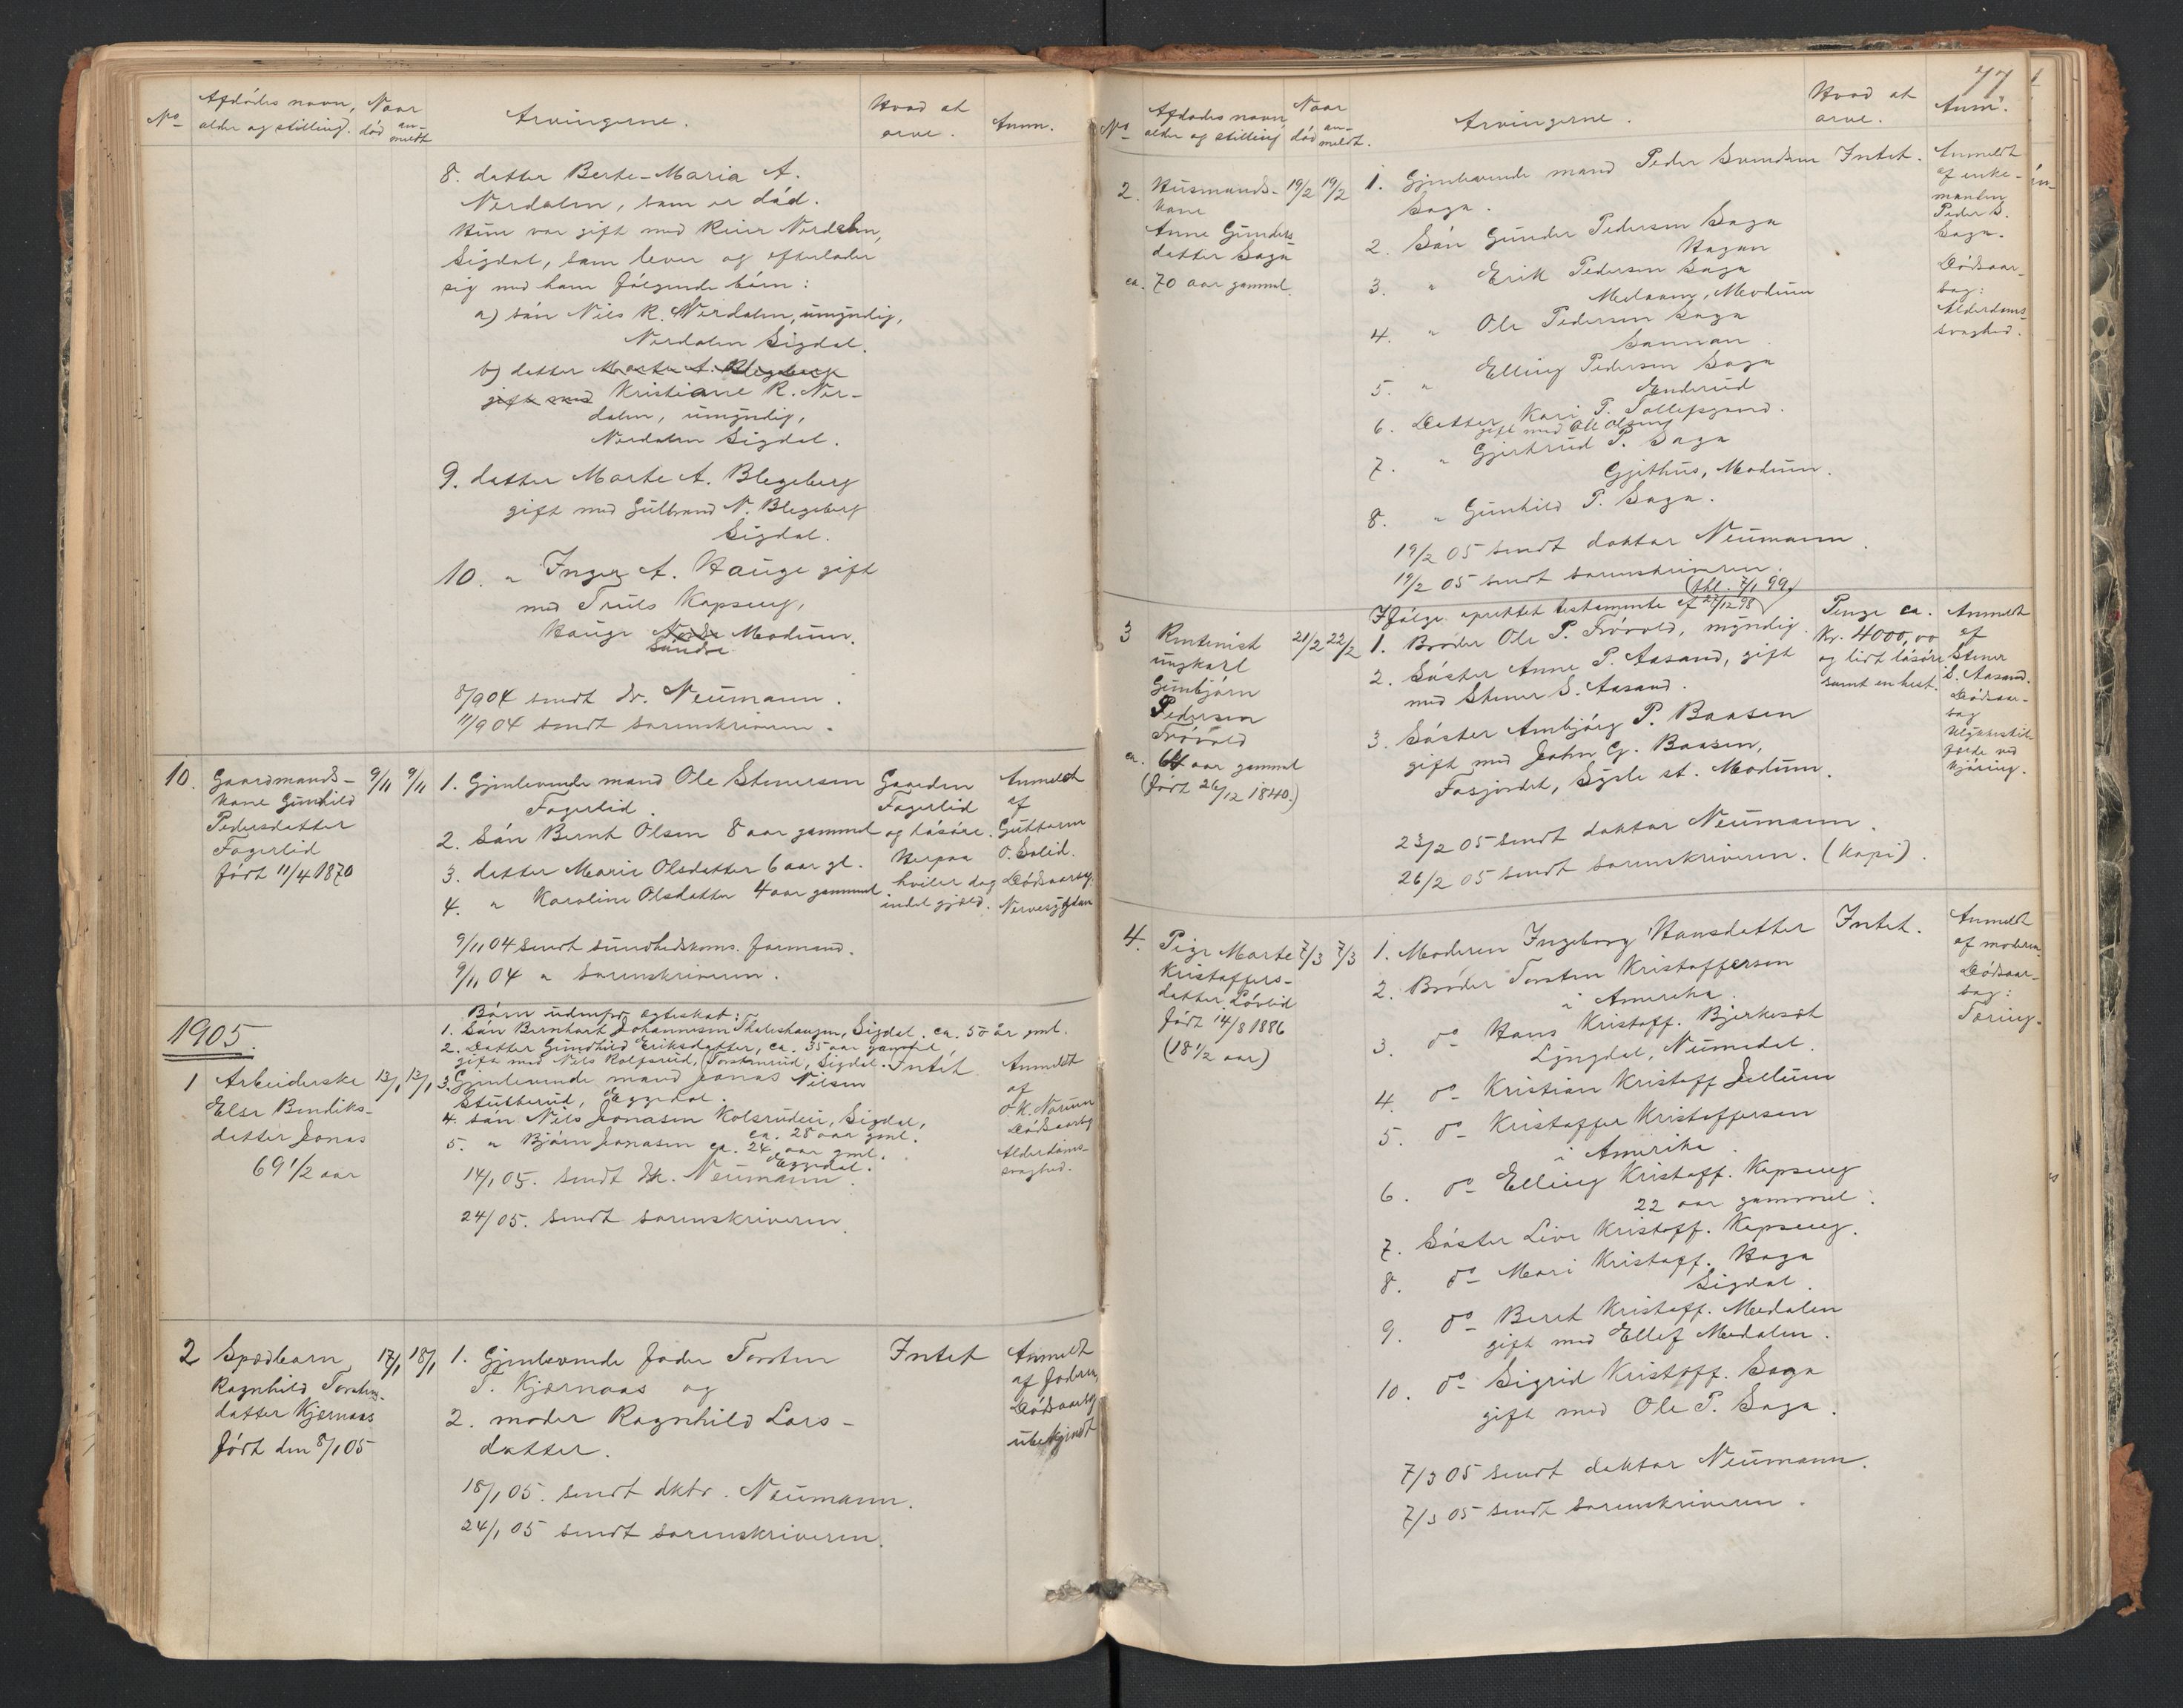 No
Afdødes navn,
alder og stilling.
Naar
død
an-
meldt
Arvingerne.
Hvad at
arve.
Anm.
8. datter Berte-Maria A.
Nerdalen, som er død.
Hun var gift med Reier Nerdalen,
Sigdal, som lever og efterlader
sig med ham følgende børn:
a) søn Nils R. Nerdalen, umyndig,
Nerdalen Sigdal.
b) datter Marte A. Blegeberg
gift med Kristiane R. Ner-
dalen, umyndig,
Nerdalen Sigdal.
9. datter Marte A. Blegeberg
gift med Gulbrand N. Blegeberg
Sigdal.
10. " Inger A. Hauge gift
med Truls Kopseng,
Hauge Nordre Modum.
Søndre
8/9 04 sendt dr. Neumann.
11/9 04 sendt sorenskriveren.
10.
Gaardmands-
kone Gunhild
Pedersdatter
Fagerlid
født 11/4 1870
9/11 9/11
1. Gjenlevende mand Ole Stenersen
Fagerlid.
2. Søn Bernt Olsen 8 aar gammel
3. datter Marie Olsdatter 6 aar gl.
4. " Karoline Olsdatter 4 aar gammel.
9/11 04 sendt sundhedskoms. formand.
9/11 04 " sorenskriveren.
Gaarden
Fagerlid
og løsøre.
Herpaa
hviler dog
endel gjæld.
Anmeldt
af
Guttorm
O. Solid.
Dødsaarsag.
Nervesygdom
1905.
1
Arbeiderske
Else Bendiks-
datter Jonas
69 1/2 aar
13/1 13/1
Børn udenfor ægteskab:
1. Søn Bernhart Johannesen Thaleshaugen, Sigdal, ca. 50 år gml.
2. Datter Gundhild Eriksdatter, ca. 35 aar gammel
gift med Nils Kolsrud, (Torstenrud, Sigdal.
3. Gjenlevende mand Jonas Nilsen
Stutterud, Eggedal.
4. søn Nils Jonasen Kolsrudeie, Sigdal,
ca. 28 aar gml.
5. " Bjørn Jonasen ca. 24 aar gml.
Eggedal.
14/1 05. sendt dr. Neumann.
24/ 05. sendt sorenskriveren.
Intet
Anmeldt
af
O. K. Narum
Dødsaarsag
Alderdoms-
svaghed.
2
Spædbarn
Ragnhild Torstens-
datter Kjærnaas
født den 8/1 05
17/1 18/1
1. Gjenlevende fader Torsten
T. Kjærnaas og
2. moder Ragnhild Lars-
datter.
18/1 05. sendt dktr. Neumann.
24/1 05 sendt sorenskriveren.
Intet
Anmeldt
af faderen,
Dødsaarsag
ubekjendt
77
No
Afdødes navn
alder og stilling
Naar
død
an-
meldt.
Arvingerne.
Hvad at
arve.
Anm.
2.
Husmands-
kone
Anne Gunders
datter Saga
ca. 70 aar gammel.
19/2 19/2
1. Gjenlevende mand Peder Svendsen
Saga.
2. Søn Gunder Pedersen Saga
Hagan
3. " Erik Pedersen Saga
Medaaen, Modum
4. " Ole Pedersen Saga
Sannan.
5. " Elling Pedersen Saga
Enderud
6. Datter Kari P. Tollefsgaard.
gift med Ole Olsen
7. " Gjertrud P. Saga
Gjethus, Modum.
8. " Gunhild P. Saga.
19/2 05 sendt doktor Neumann.
19/2 05 sendt sorenskriveren.
Intet.
Anmeldt
af enke-
manden
Peder S.
Saga.
Dødsaar-
sag:
Alderdoms-
svaghed.
3
Rentenist
ungkarl
Gunbjørn
Pedersen
Frøvold
ca. 64 aar gammel
(født 26/12 1840.)
21/2 22/2
(thl. 7/1 99)
Ifølge oprettet testamente af 27/12 98
1. Broder Ole P. Frøvold, myndig.
2. Søster Anne P. Aasand, gift
med Stener S. Aasand.
3. Søster Ambjørg P. Baasen
gift med John G. Baasen,
Fosjordet, Sysle st. Modum.
23/2 05 sendt doktor Neumann.
26/2 05 sendt sorenskriveren. (Kopi).
Penge ca.
Kr. 4000,00
og lidt løsøre
samt en hest.
Anmeldt
af
Stener
S. Aasand.
Dødsaar-
sag
Ulykkestil-
fælde ved
kjøring.
4.
Pige Marte
Kristoffers-
datter Løvlid
født 14/8 1886
(18 1/2 aar)
7/3 7/3
1. Moderen Ingeborg Hansdatter
2. Broder Torsten Kristoffersen
i Amerika.
3. do Hans Kristoff. Bjerkesæt
Lyngdal, Numedal.
4. do Kristian Kristoff Jellum
5. do Kristoffer Kristoffersen
i Amerika.
6. do Elling Kristoff. Kopseng
22 aar gammel.
7. Søster Live Kristoff. Kopseng.
8. do Mari Kristoff. Haga
Sigdal.
9. do Beret Kristoff. Medalen
gift med Ellef Medalen.
10. do Sigrid Kristoff. Saga
gift med Ole P. Saga.
7/3 05 sendt doktor Neumann.
7/3 05 sendt sorenskriveren.
Intet.
Anmeldt
af moderen.
Dødsaar-
sag:
Tæring.